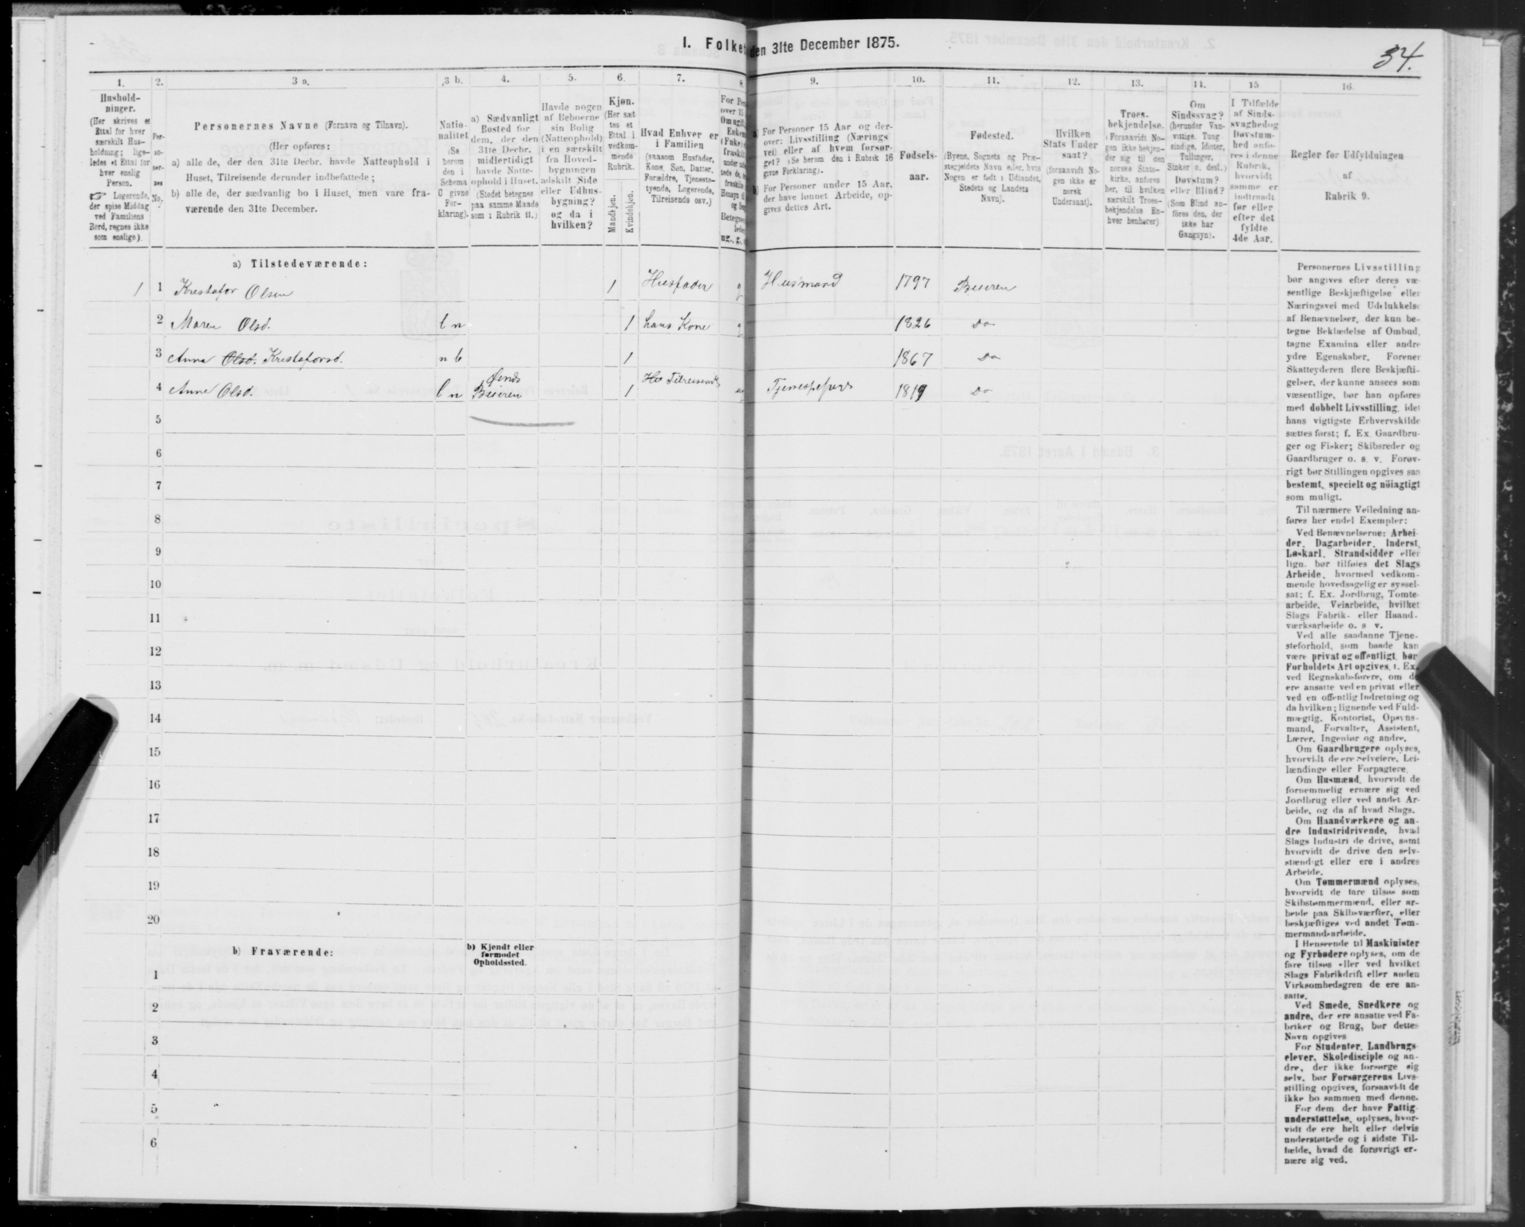 I. Folket
den 31te December 1875.
34.
1. 2. 3 a. 3 b. 4. 5. 6. 7. 8 9. 10. 11. 12. 13. 14. 15 16.
Hushold-
ninger.
(Her skrives et
Ettal for hver
særskilt Hus-
holdning; lige-
ledes et Ettal for
hver enslig
Person.
Logerende,
der spise Middag
ved Familiens
Bord, regnes ikke
som enslige.)
Per-
so-
ner-
nes
No.
Personernes Navne (Fornavn og Tilnavn).
(Her opføres:
a) alle de, der den 31te Decbr. havde Natteophold i
Huset, Tilreisende derunder indbefattede;
b) alle de, der sædvanlig bo i Huset, men vare fra-
værende den 31te December.
Natio-
nalitet
(Se
herom
den i
Schema
C givne
For-
klaring).
a) Sædvanligt
Bosted for
dem, der den
31te Decbr.
midlertidigt
havde Natte-
ophold i Huset.
(Stedet betegnes
paa samme Maade
som i Rubrik 11.)
Havde nogen
af Beboerne
sin Bolig
(Natteophold)
i en særskilt
fra Hoved-
bygningen
adskilt Side
eller Udhus-
bygning?
og da i
hvilken?
Kjøn.
(Her sæt
tes et
Ettal i
vedkom-
mende
Rubrik.
Mandkjøn.
Kvindekjøn.
Hvad Enhver er
i Familien
(saasom Husfader,
Kone, Søn, Datter,
Forældre, Tjeneste-
tyende, Logerende,
Tilreisende osv.)
a) For Personer 15 Aar og der-
over: Livsstilling (Nærings
vei) eller af hvem forsør-
get? (Se herom den i Rubrik 16
givne Forklaring).
b) For Personer under 15 Aar,
der have lønnet Arbeide, op-
gives dettes Art.
Fødsels-
aar.
Fødested.
(Byens, Sognets og Præ-
stegjeldets Navn eller, hvis
Nogen er født i Udlandet,
Stedets og Landets
Navn).
Hvilken
Stats Under
saat?
(forsaavidt No-
gen ikke er
norsk
Undersaat).
Troes-
bekjendelse.
(Forsaavidt No-
gen ikke bekjen-
der sig til den
norske Stats-
kirke, anføres
her, til hvilken
særskilt Troes-
bekjendelse En-
hver henhører)
Om
Sindssvag?
(herunder Van-
vittige, Tung
sindige, Idioter,
Tullinger,
Sinker o. desl.)
Døvstum?
eller Blind?
(Som Blind an-
føres den, der
ikke har
Gangsyn).
I Tilfælde
af Sinds-
svaghed og
Døvstum-
hed anfø-
res i denne
Rubrik,
hvorvidt
samme er
indtraadt
før eller
efter det
fyldte
4de Aar.
Regler for Udfyldningen
af
Rubrik 9.
a) Tilstedeværende:
1 1 Krestofer Olsen 1 Husfader g Husmand 1797 Beieren
2 Maren Olsd. b n 1 hans Kone g 1826 Do
3 Anna Olsd. Krestofersd. n b 1 1867 Do
4 Anne Olsd. b n Beieren 1 Tilreisende 1819 Do
5
6
7
8
9
10
11
12
13
14
15
16
17
18
19
20
b) Fraværende:
b) Kjendt eller
formodet
Opholdssted.
1
2
3
4
5
6
Personernes Livsstilling
bør angives efter deres væ-
sentlige Beskjæftigelse eller
Næringsvei med Udelukkelse
af Benævnelser, der kun be-
tegne Beklædelse af Ombud,
tagne Examina eller andre
ydre Egenskaber. Forener
Skatteyderen flere Beskjæfti-
gelser, der kunne ansees som
væsentlige, bør han opføres
med dobbelt Livsstilling, idet
hans vigtigste Erhvervskilde
sættes først; f. Ex. Gaardbru-
ger og Fisker; Skibsreder og
Gaardbruger o. s. v. Forøv-
rigt bør Stillingen opgives saa
bestemt, specielt og nöiagtigt
som muligt.
Til nærmere Veiledning an-
føres her endel Exempler:
Ved Benævnelserne: Arbei-
der, Dagarbeider, Inderst,
Løskarl, Strandsidder eller
lign. bør tilføies det Slags
Arbeide, hvormed vedkom-
mende hovedsagelig er syssel-
sat; f. Ex. Jordbrug, Tomte-
arbeide, Veiarbeide, hvilket
Slags Fabrik- eller Haand-
værksarbeide o. s. v.
Ved alle saadanne Tjene-
steforhold, som baade kan
være privat og offentligt, bør
Forholdets Art opgives, f. Ex.
ved Regnskabsførere, om de
ere ansatte ved en privat eller
ved en offentlig Indretning og
da hvilken; lignende ved Fuld-
mægtig, Kontorist, Opsyns-
mand, Forvalter, Assistent,
Lærer, Ingeniør og andre.
Om Gaardbrugere oplyses,
hvorvidt de ere Selveiere, Lei-
lændinge eller Forpagtere.
Om Husmænd, hvorvidt de
fornemmelig ernære sig ved
Jordbrug eller ved andet Ar-
beide, og da af hvad Slags.
Om Haandværkere og an-
dre Industridrivende, hvad
Slags Industri de drive, samt
hvorvidt de drive den selv-
stændigt eller ere i andres
Arbeide.
Om Tømmermænd oplyses,
hvorvidt de fare tilsøs som
Skibstømmermænd, eller ar-
beide paa Skibsværfter, eller
beskjæftiges ved andet Tøm-
mermandsarbeide.
I Henseende til Maskinister
og Fyrbødere oplyses, om de
fare tilsøs eller ved hvilket
Slags Fabrikdrift eller anden
Virksomhedsgren de ere an-
satte.
Ved Smede, Snedkere og
andre, der ere ansatte ved Fa-
briker og Brug, bør dettes
Navn opgives
For Studenter, Landbrugs-
elever, Skoledisciple og an-
dre, der ikke forsørge sig
selv, bør Forsørgerens Livs-
stilling opgives, forsaavidt de
ikke bo sammen med denne.
For dem der have Fattig-
understøttelse, oplyses, hvor-
vidt de ere helt eller delvis
understøttede og i sidste Til-
fælde, hvad de forøvrigt er-
nære sig ved.